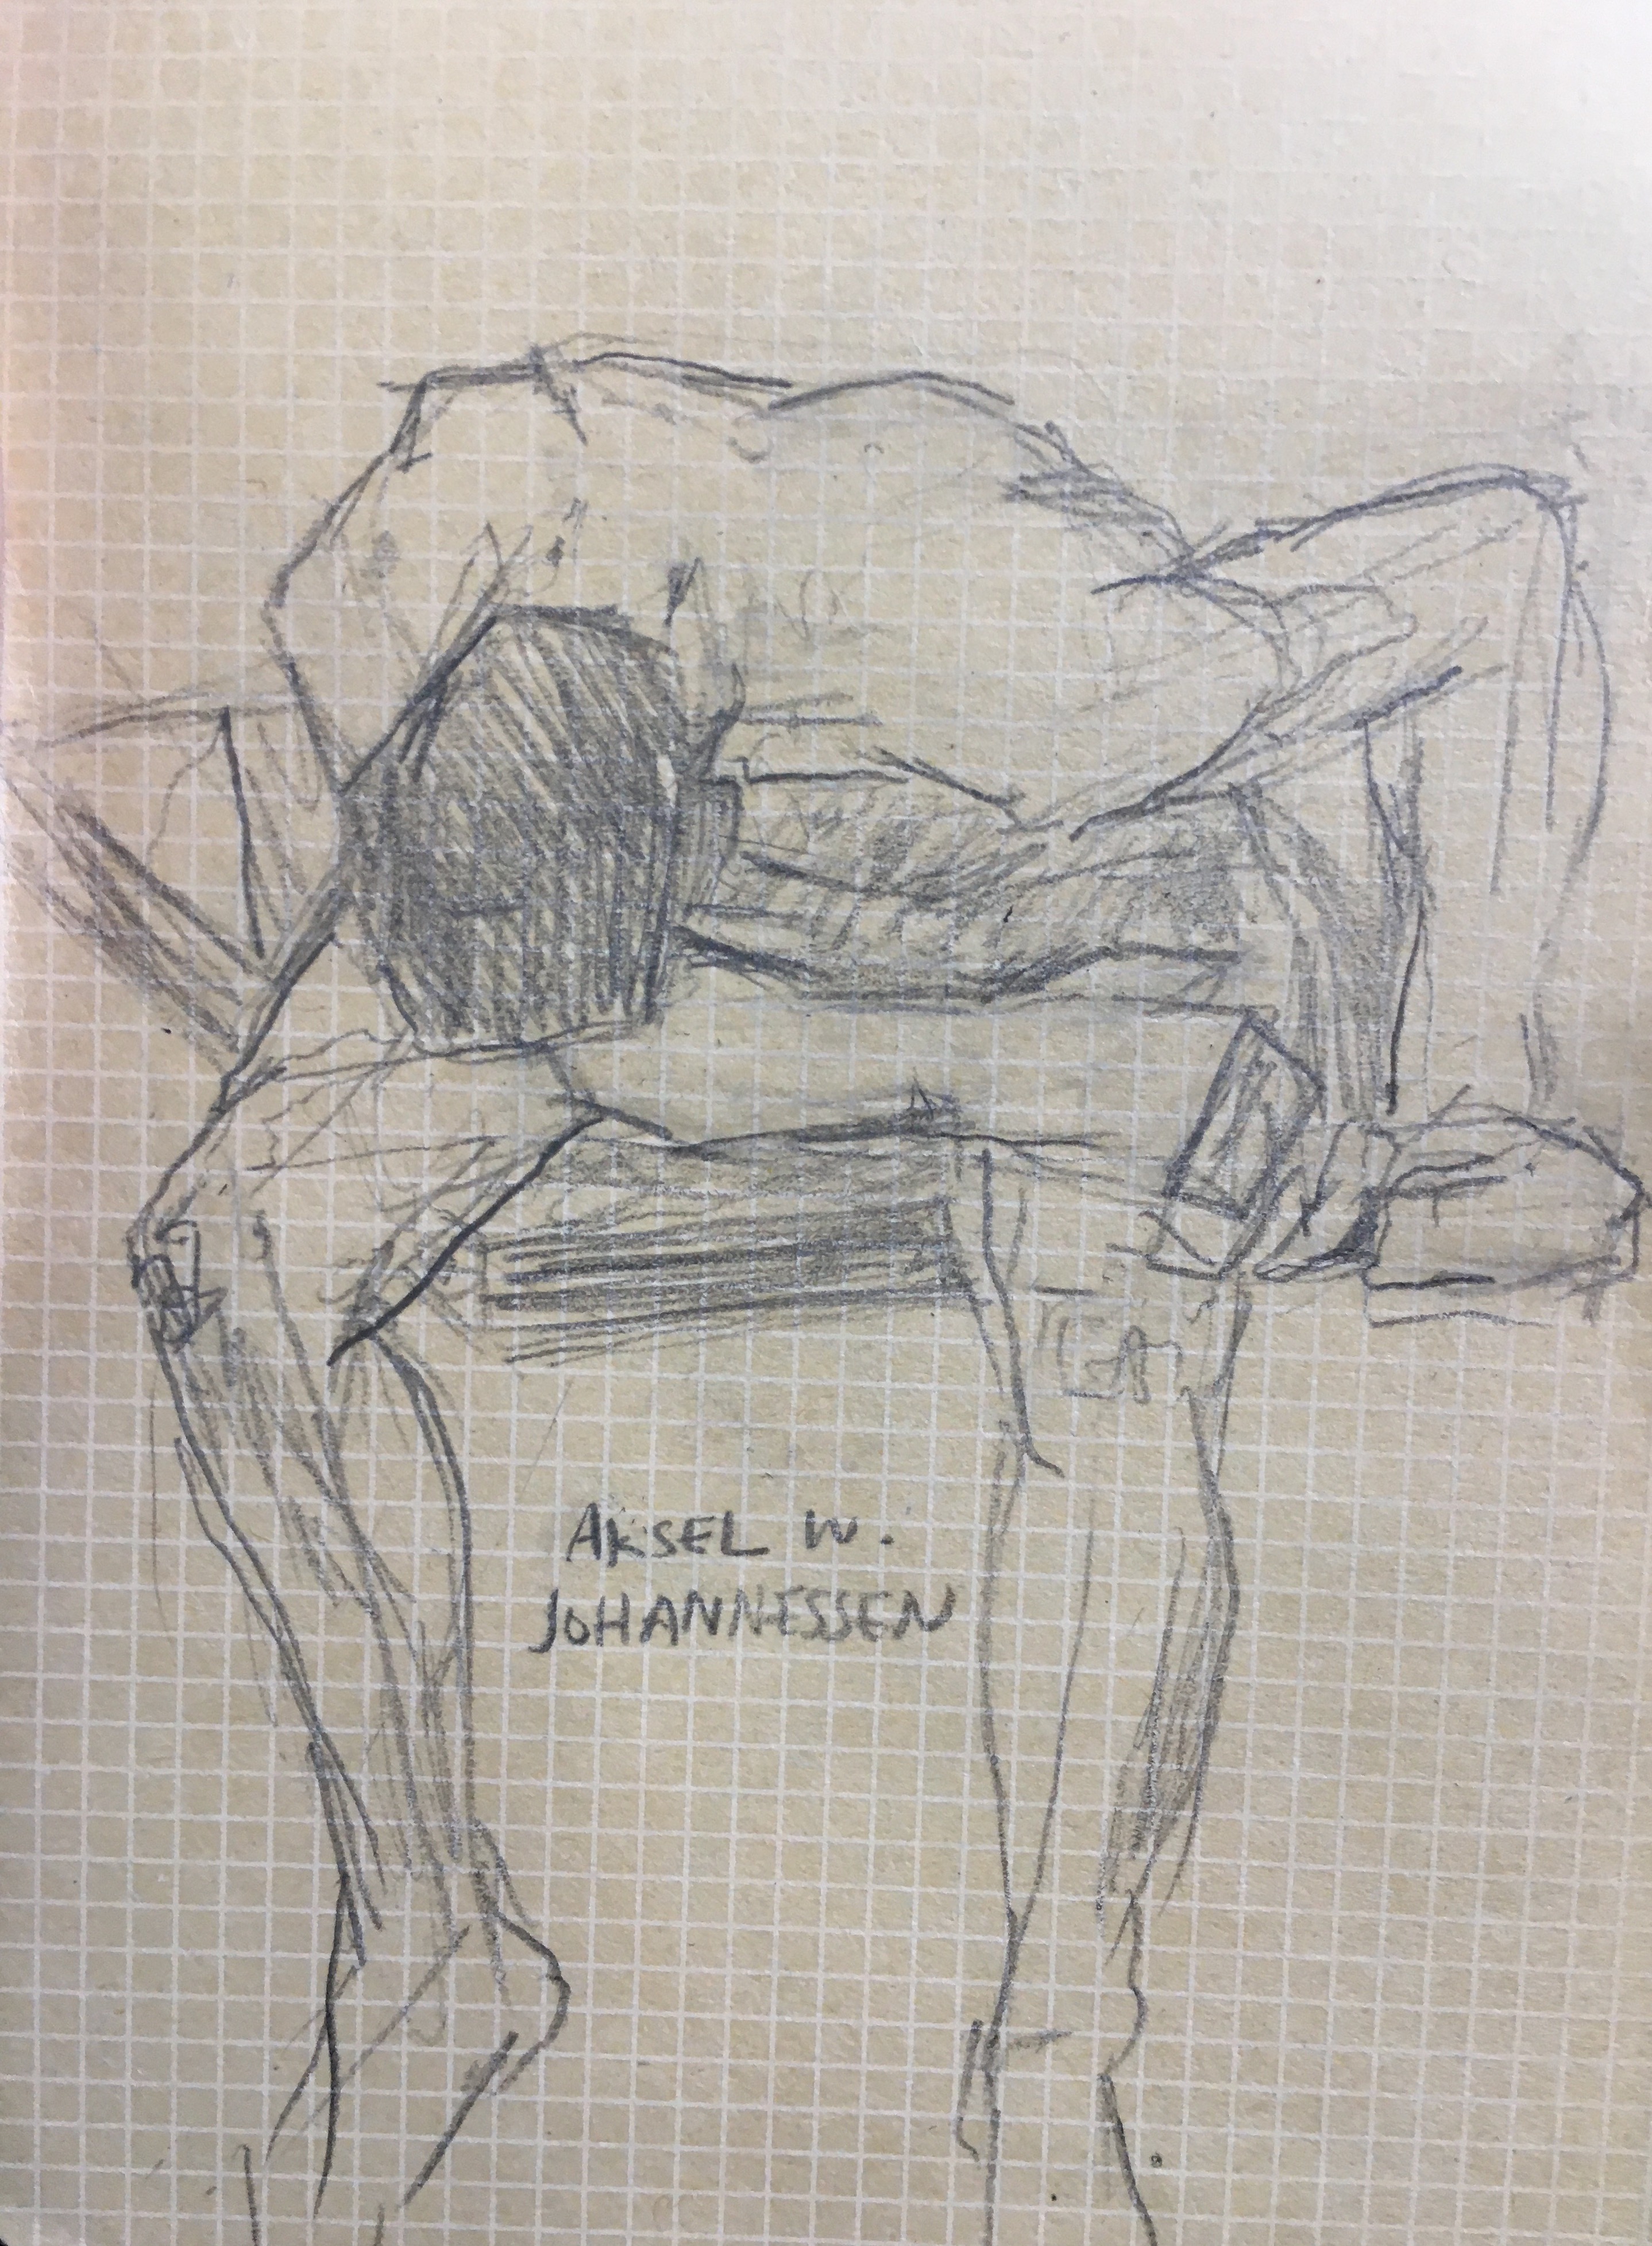 AKSEL W.
JOHANNESSEN